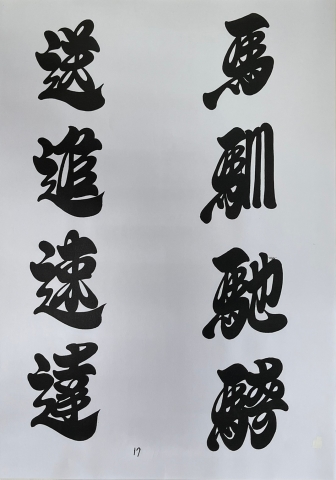 馬馴馳
送進速達
17